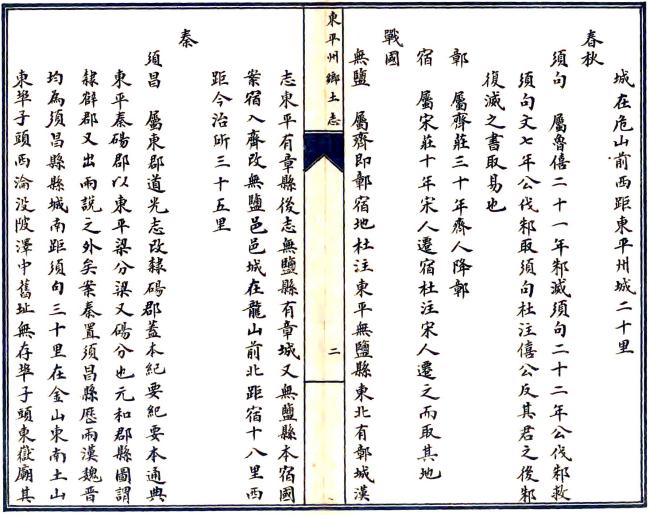 城在危山前西距東平州城二十里
春秋
須句　屬魯僖二十一年邾滅須句二十二年公伐邾救
須句文七年公伐邾取須句杜注僖公反其君之後邾
復滅之書取易也
鄣　屬齊莊三十年齊人降鄣
宿　屬宋莊十年宋人遷宿杜注宋人遷之而取其地
戰國
無鹽　屬齊即鄣宿地杜注東平無鹽縣東北有鄣城漢
東平州鄉土志
二
志東平有章縣後志無鹽縣有章城又無鹽縣本宿國
案宿入齊改無鹽邑邑城在龍山前北距宿十八里西
距今治所三十五里
秦
須昌　屬東郡道光志改隸碭郡蓋本紀要紀要本通典
東平秦碭郡以東平梁分梁又碭分也元和郡縣圖謂
隸薛郡又出兩說之外矣案秦置須昌縣歷兩漢魏晉
均為須昌縣縣城南距須句三十里在金山東南土山
東埠子頭西淪沒陂澤中舊址無存埠子頭東嶽廟其